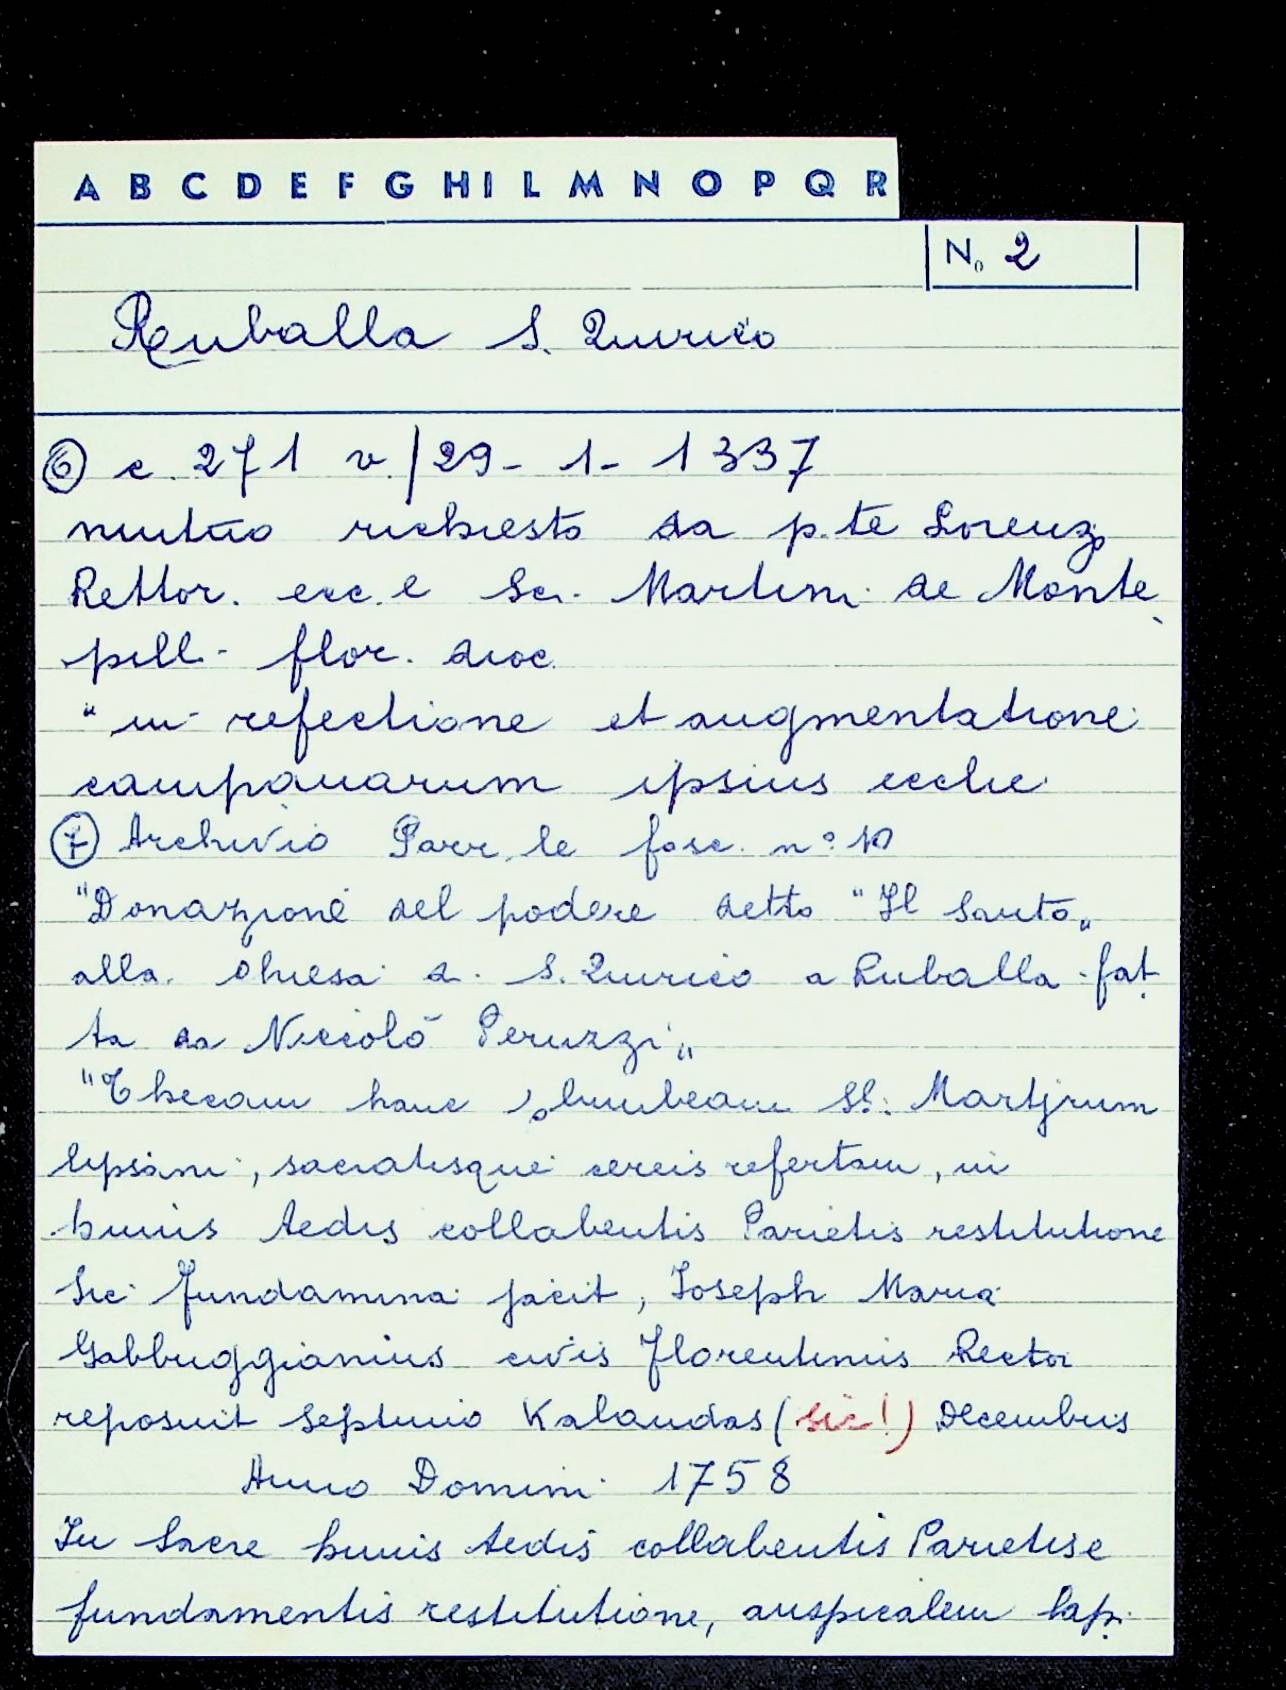 A B C D E F G H I L M N O P Q R
N. 2
Ruballa S. Quirico
⑥ c. 271 v./29-1-1337
mutuo richiesto da p.te Lorenzo
Rettor. ecc.e Sci. Martini de Monte
pill- flor. dioc.
"in refectione et augmentatione
campanarum ipsius ecclie
⑦ Archivio Parr.le fasc. n° 10
"Donazione del podere detto "Il Santo"
alla Chiesa di S. Quirico a Ruballa fat
ta da Niccolò Peruzzi"
"Thecam hanc plumbeam SS. Martjrum
lipsani, sacratisque cereis refertam, in
huius Aedis collabentis Parietis restitutione
Sic fundamina jacit, Joseph Maria
Gabbuggianius civis florentinus Rector
reposuit septimo Kalandas (sic!) Decembris
Anno Domini 1758
In Sacre huius Aedis collabentis Parietis e
fundamentis restitutione, auspicalem lapi